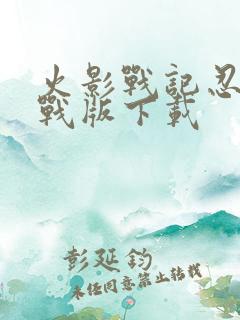 火影戰記忍
戰版下載
彭延鈞
未经同意禁止转载